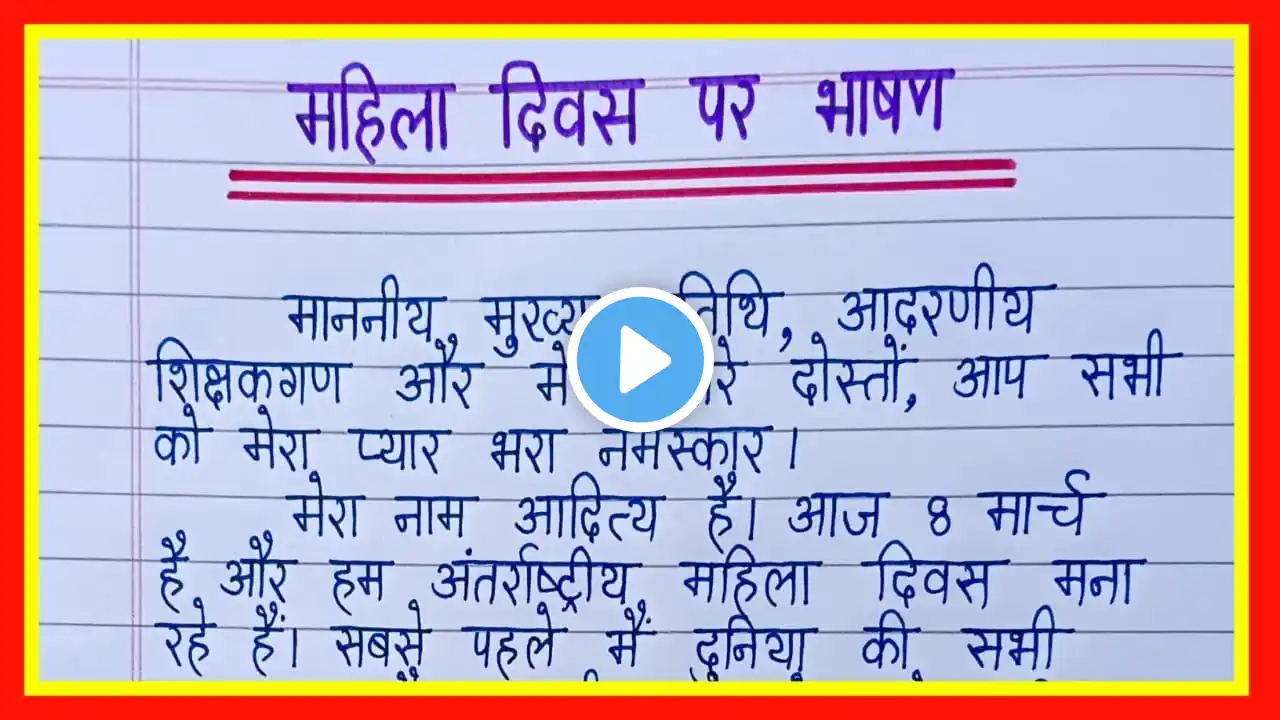 महिला दिवस पर भाषण
माननीय मुख्य तिथि, आदरणीय
शिक्षकगण और मे रे दोस्तों, आप सभी
को मेरा प्यार भरा नमस्कार।
मेरा नाम आदित्य है। आज 8 मार्च
है और हम अंतर्राष्ट्रीय महिला दिवस मना
रहे हैं। सबसे पहले मैं दुनिया की सभी